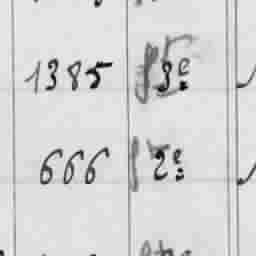 1385 3e
666 2e